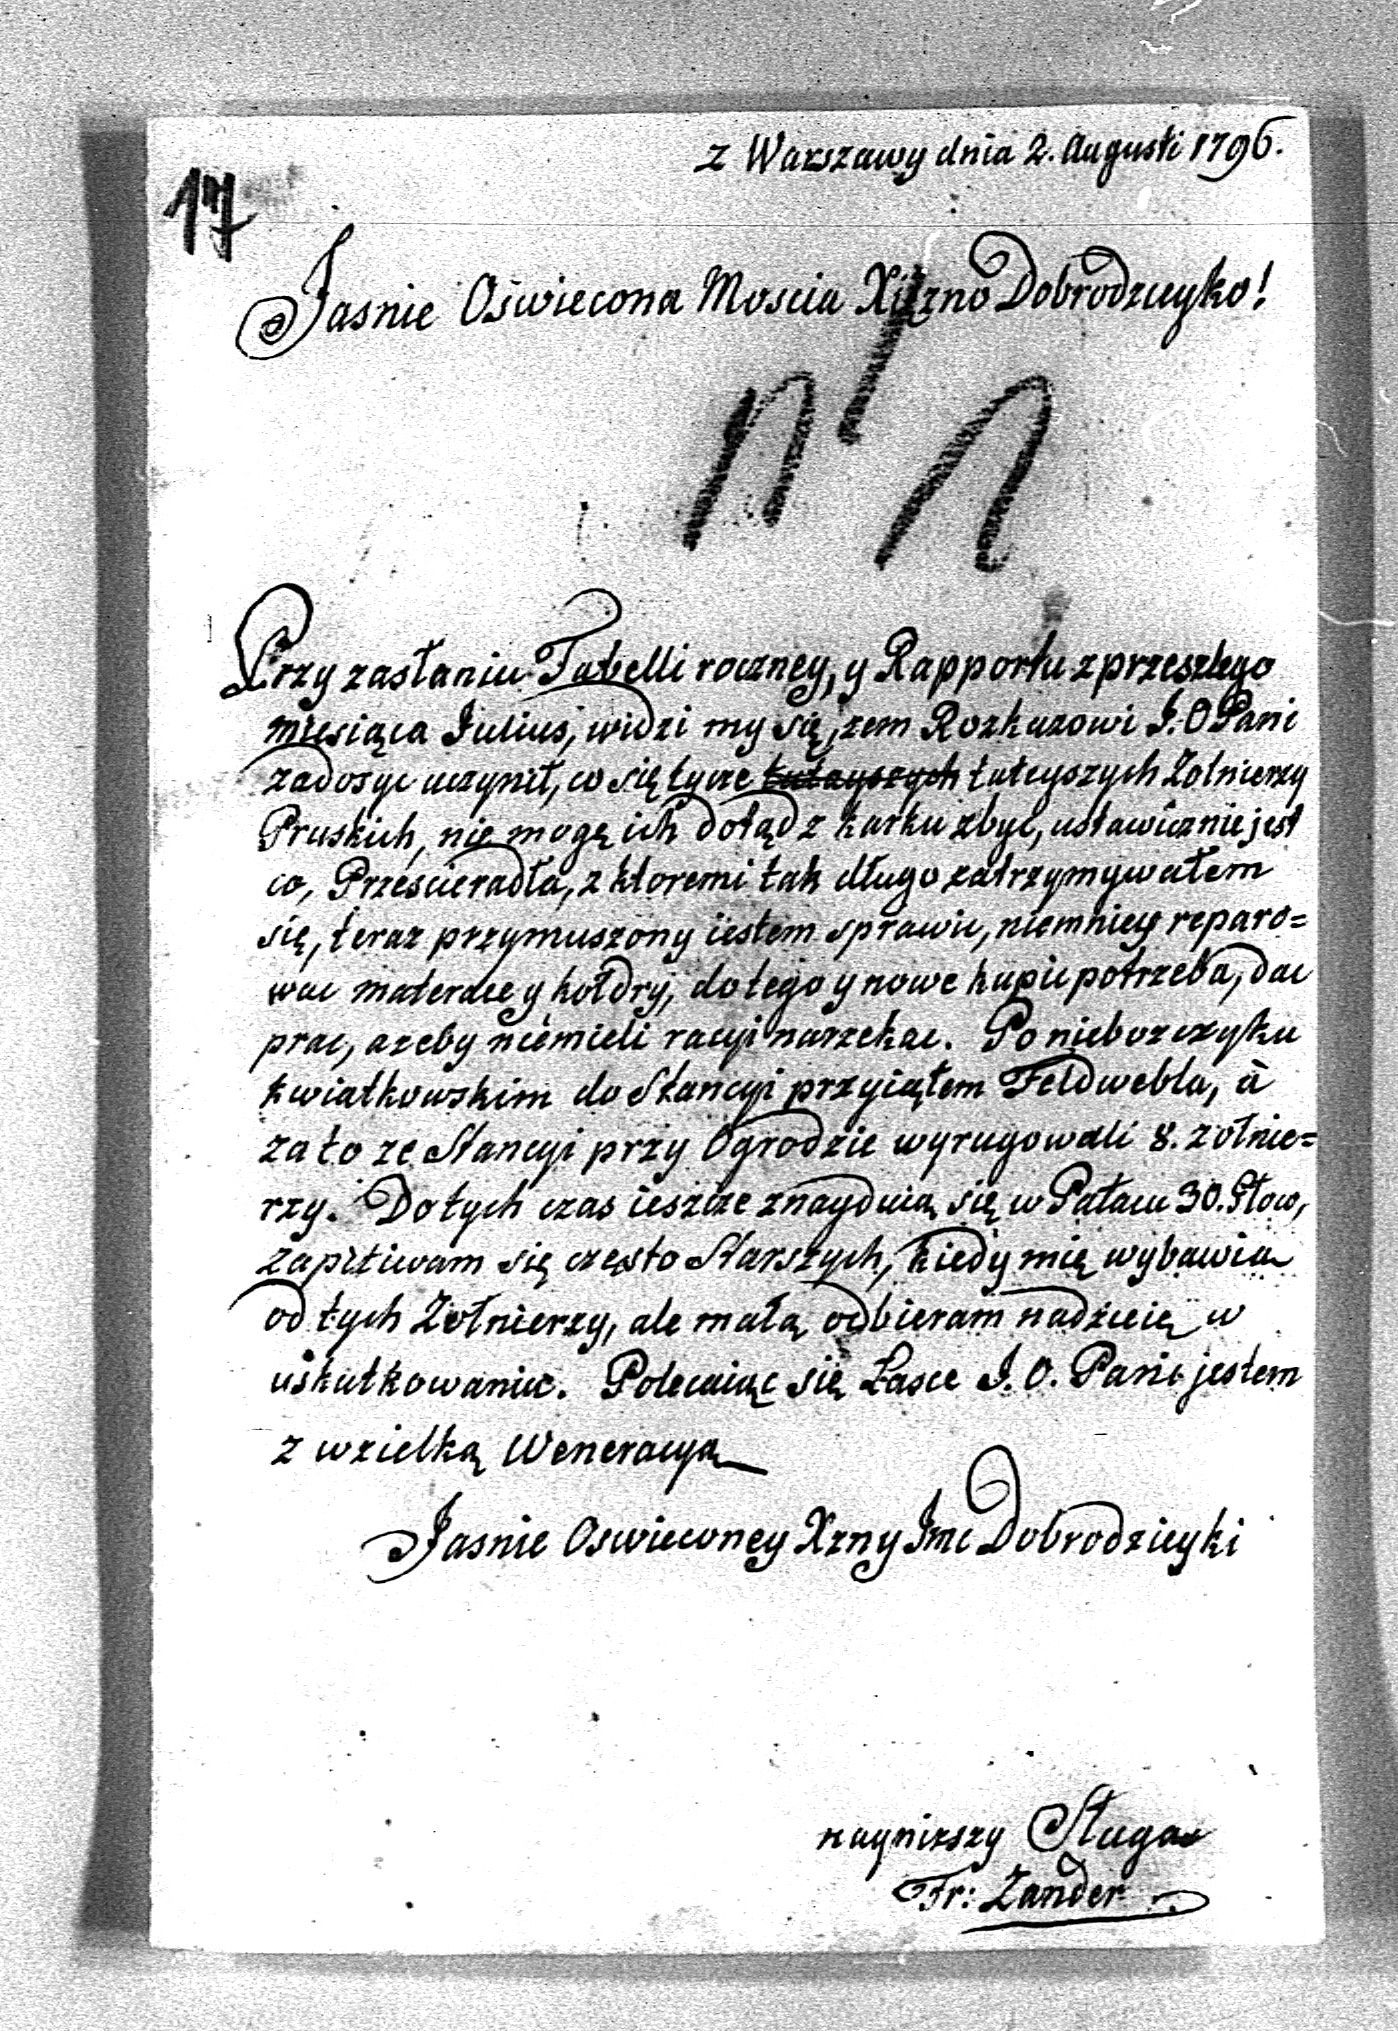 z Warszawy dnia 2. Augusti 1796.
17
Jasnie Oświecona Moscia Xiężno Dobrodzieyko!
Przy zasłaniu Tabelli roczney, y Rapportu z przeszłego
miesiąca Julius, widzi my się, żem Rozkazowi J. O Pani
zadosyc uczynił, co się tycze tutayszych tuteyszych Zołnierzy
Pruskich, nie mogę ich dotąd z karku zbyc, ustawicznie jest
co, Przescieradła, z ktoremi tak długo zatrzymywałem
się, teraz przymuszony iestem sprawic, niemniey reparo=
wac materace y kołdry, do tego y nowe kupic potrzeba, dac
prac, azeby niemieli racyi narzekac. Po nieboszczyku
Kwiatkowskim do Stancyi przyiąłem Feldwebla, à
za to ze Stancyi przy Ogrodzie wyrugowali 8. zołnie=
rzy. Do tych czas ieszcze znayduią się w Pałacu 30. Głow,
zapytiwam się często Starszych, kiedy mię wybawia
od tych Zołnierzy, ale małą odbieram nadzieię w
uskutkowaniu. Polecaiąc się Łasce J. O. Pani jestem
z wzielką Weneracyą
Jasnie Oswieconey Xzny Jmc Dobrodzieyki
naynizszy Sługa
Fr: Zander